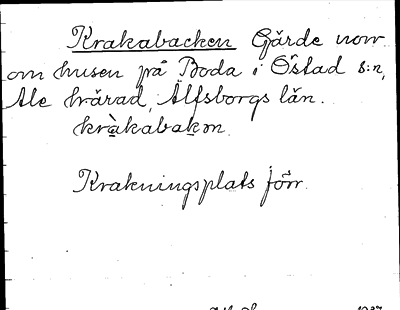 Krakabacken Gärde norr
om husen på Boda i Östad s:n,
Ale härad, Älfsborgs län.
kràkabakən
Krakningsplats förr.